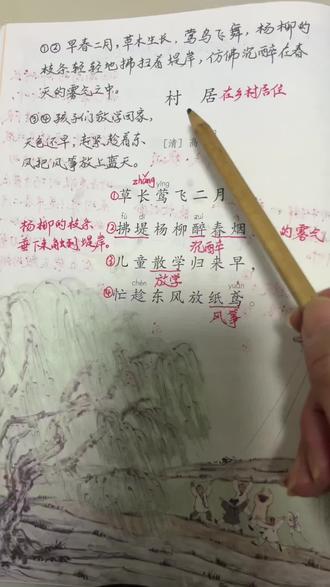 ①② 早春二月,草木生长,莺鸟飞舞,杨柳的
枝条轻轻地拂扫着堤岸,仿佛沉醉在春
天的雾气之中。
村 居 在乡村居住
③④ 孩子们放学回家,
天色还早,赶紧趁着东
风把风筝放上蓝天。
[清] 高
zhǎng yīng
①草长莺飞二月
杨柳的枝条
垂下来触到堤岸。
fú dī zuì
②拂堤杨柳醉春烟
沉醉
的雾气
③儿童散学归来早,
放学
chèn yuān
④忙趁东风放纸鸢。
风筝